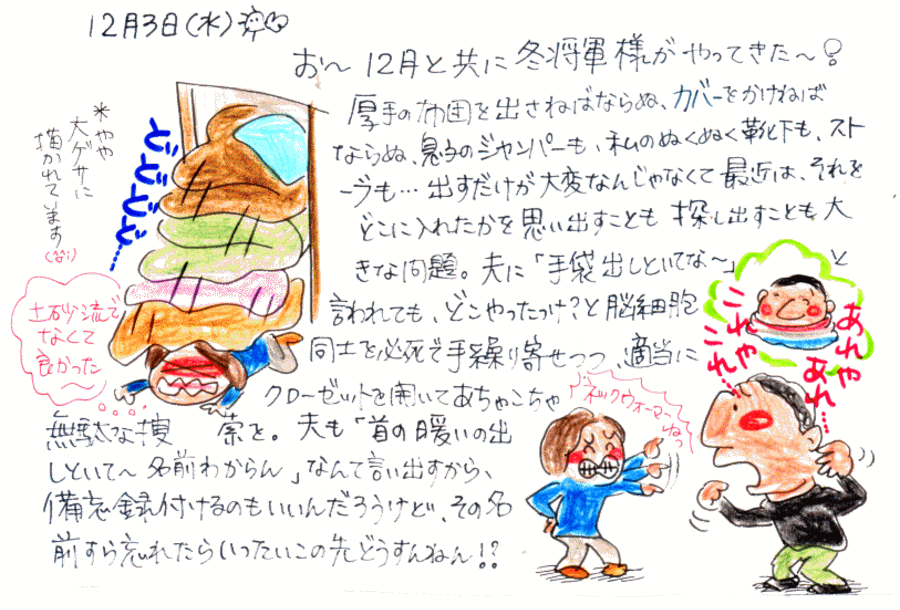 12月3日(水)
お～12月と共に冬将軍様がやってきた～!
厚手の布団を出さねばならぬ、カバーをかけねば
ならぬ、息子のジャンパーも、私のぬくぬく靴下も、スト
ーブも…出すだけが大変なんじゃなくて最近は、それを
どこに入れたかを思い出すことも探し出すことも大
きな問題。夫に「手袋出しといてな～」と
言われても、どこやったっけ?と脳細胞
同士を必死で手繰り寄せつつ、適当に
クローゼットを開いてあちゃこちゃ
無駄な捜索を。夫も「首の暖いの出
しといて～名前わからん」なんて言い出すから、
備忘録付けるのもいいんだろうけど、その名
前すら忘れたらいったいこの先どうすんねん!?
*やや
大ゲサに
描かれています
どどどどど…
土砂流で
なくて
良かった
～
ネックウォーマーねっ
あれや
あれ…
これや
これ…